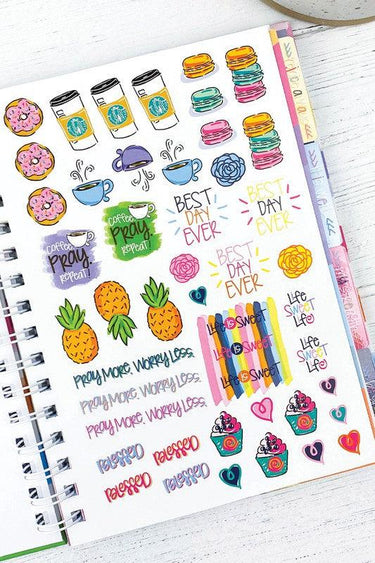 COFFEE,
PRAY,
REPEAT!
COFFEE,
PRAY,
REPEAT!
BEST
DAY
EVER
BEST
DAY
EVER
BEST
DAY
EVER
PRAY MORE, WORRY LESS.
PRAY MORE, WORRY LESS.
PRAY MORE, WORRY LESS.
Life is Sweet
Life is Sweet
Life is Sweet
Life
SWEET
Life
Life
SWEET
Life
BLESSED
BLESSED
BLESSED
BLESSED